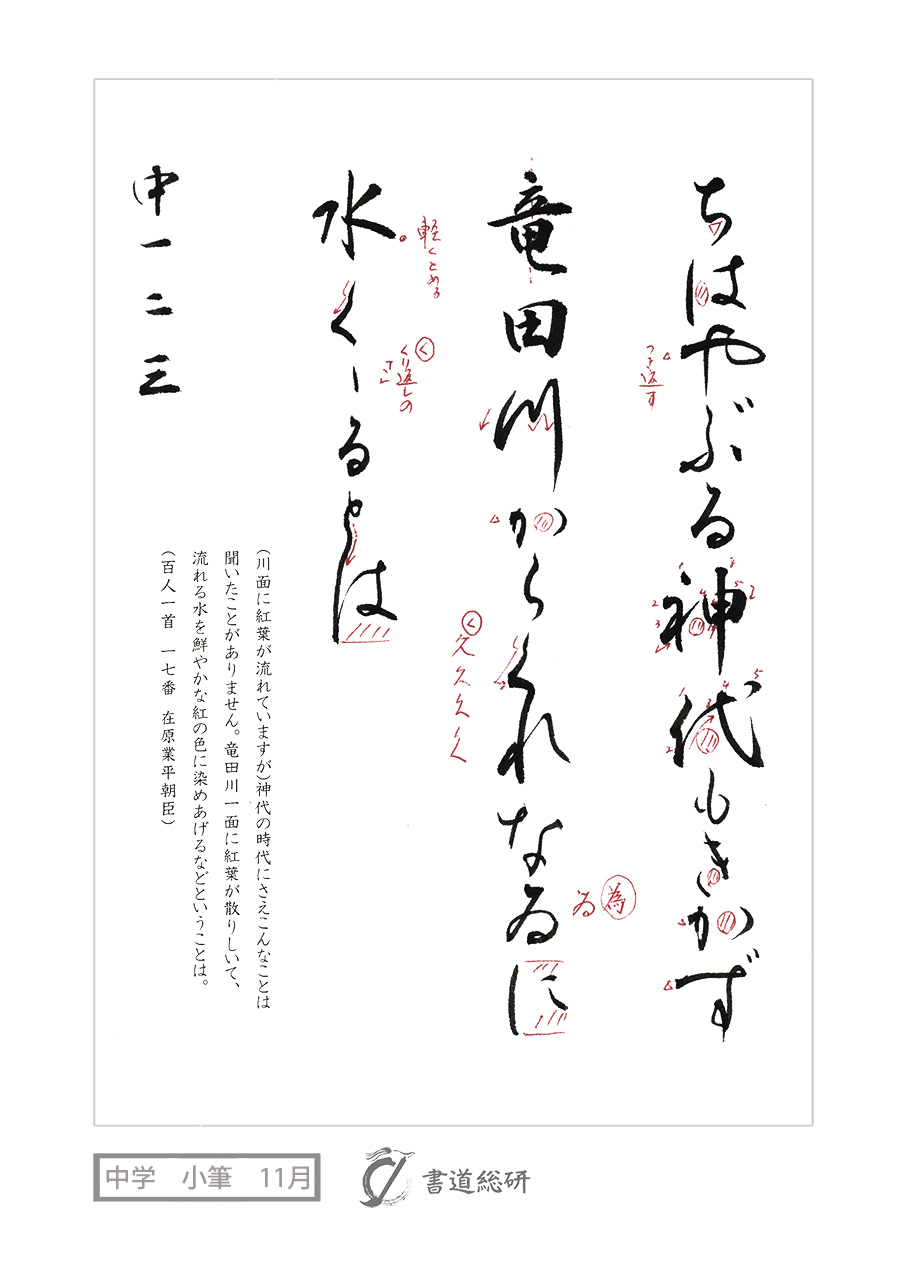 ちはやぶる神代もきかず
つき返す
竜田川からくれなゐに
為
ゐ
く
久
水くゝるとは
軽くとめる
く
くり返しの
中一二三
(川面に紅葉が流れていますが)神代の時代にさえこんなことは
聞いたことがありません。竜田川一面に紅葉が散りしいて、
流れる水を鮮やかな紅の色に染めあげるなどということは。
(百人一首 一七番 在原業平朝臣)
中学 小筆 11月
書道総研